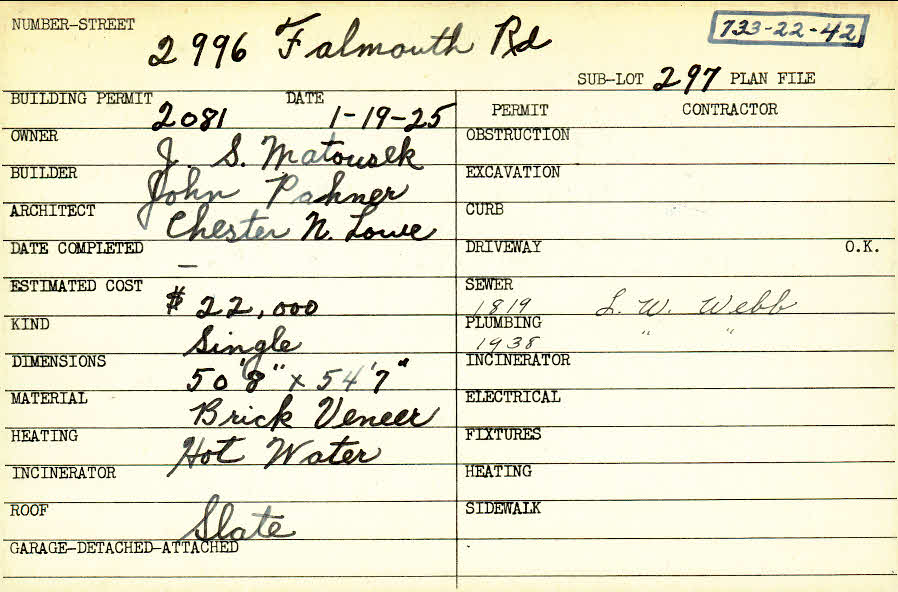 NUMBER-STREET 2996 Falmouth Rd 733-22-42
SUB-LOT 297 PLAN FILE
BUILDING PERMIT 2081 DATE 1-19-25
OWNER J. S. Matousek
BUILDER John Pahner
ARCHITECT Chester N. Lowe
DATE COMPLETED —
ESTIMATED COST $22,000
KIND Single
DIMENSIONS 50'8" x 54'7"
MATERIAL Brick Veneer
HEATING Hot Water
INCINERATOR
ROOF Slate
GARAGE-DETACHED-ATTACHED
PERMIT CONTRACTOR
OBSTRUCTION
EXCAVATION
CURB
DRIVEWAY O.K.
SEWER 1819 L. W. Webb
PLUMBING 1938 " "
INCINERATOR
ELECTRICAL
FIXTURES
HEATING
SIDEWALK